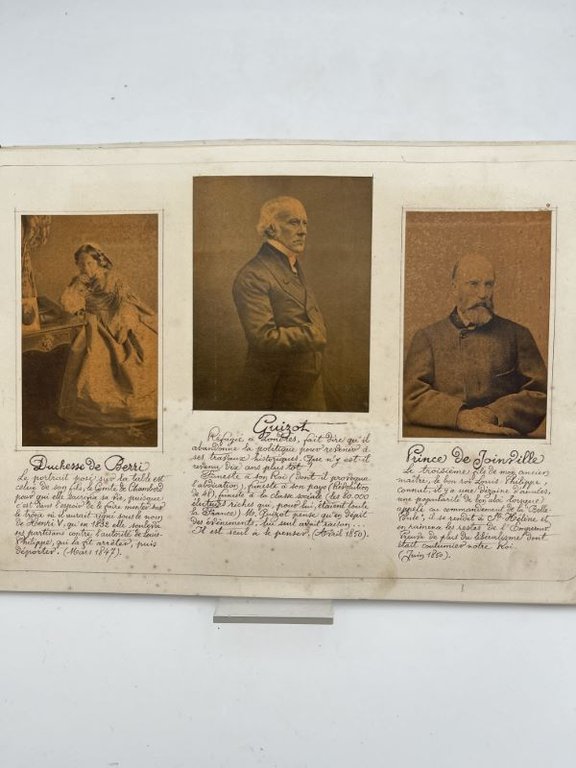 Duchesse de Berri
Le portrait posé sur la table est
celui de son fils, le Comte de Chambord
pour qui elle sacrifia sa vie, puisque
c'est dans l'espoir de le faire monter sur
le trône où il aurait régné sous le nom
de Henri V, qu'en 1832 elle souleva
ses partisans contre l'autorité de Louis-
Philippe, qui la fit arrêter, puis
déporter. (Mars 1847).
Guizot
Réfugié à Londres, fait dire qu'il
abandonne la politique pour revenir à
ses travaux historiques. Que n'y est-il
revenu dix ans plus tôt
Funeste à son Roi (dont il provoqua
l'abdication), funeste à son pays (Révolution
de 48), funeste à la classe sociale (les 80.000
électeurs riches qui, pour lui, étaient toute
la France) Mr Guizot pense qu'en dépit
des événements, lui seul avait raison...
Il est seul à le penser. (Avril 1850).
Prince de Joinville
Le troisième fils de mon ancien
maître, le bon roi Louis Philippe,
connut, il y a une dizaine d'années,
une popularité de bon aloi lorsque
appelé au commandement de la "Belle
Poule", il se rendit à Ste Hélène et
en ramena les restes de l'Empereur
Preuve de plus du libéralisme dont
était coutumier notre Roi.
(Juin 1850).